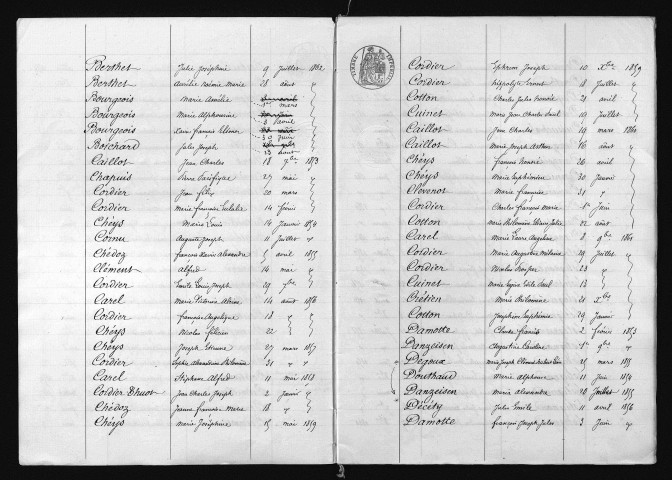 Berthet Julie Joséphine 9 Juillet 1862
Berthet Aurélie Noémie Marie 28 août "
Bourgeois Marie Amélie mars
Bourgeois Marie Alphonsine 8 avril
Bourgeois Louis françois 30 Juin
Boichard Jules Joseph 23 août
Caillot Jean Charles 18 7bre 1853
Chapuis Pierre 27 mai "
Cordier Jean félix 20 mars
Cordier Marie françoise Eulalie 14 février
Chéys Marie Louis 14 Janvier 1854
Cornu Auguste Joseph 11 Juillet "
Chédoz françois Xavier Alexandre 5 avril 1855
Clément Alfred 14 mai "
Cordier Emile Louis Joseph 29 7bre
Carel Marie 14 août 1856
Cordier françoise Angélique 18 " "
Chéys Nicolas félicien 22
Chéys Joseph Etienne 27 mars 1857
Cordier Sophie Philomène 31 " "
Carel Stéphane Alfred 11 mai 1858
Cordier Thuot Jean Charles Joseph 2 Janvier "
Chédoz Jeanne françoise Marie 18 "
Chéys Marie Joséphine 15 mai 1859
TIMBRE IMPERIAL
Cordier Ephrem Joseph 10 Xbre 1859
Cordier hippolyte Ernest 18 Juillet "
Cotton Charles Jules 21 avril
Cuinet Marie Jean Charles 19 Juillet
Caillot Jean Charles 19 mars 1860
Caillot Marie Joseph Arthur 16 août "
Chéys francis honoré 26 avril
Chéys Marie Euphémie 30 Janvier
Clévenot Marie françoise 31 "
Cordier Charles françois Marie 5 Juin
Cotton Marie Philomène 22 août
Carel Marie Laure Angeline 8 9bre 1861
Cordier Marie Augustine Mélanie 29 Juillet "
Cordier Nicolas Prosper 23 "
Cuinet Marie 13
Crétien Marie Philomène 21 Xbre
Cotton Joséphine Euphémie 29 Janvier
Damotte Claude francis 2 février 1853
Danzeisen Augustine Caroline 5 9bre "
Dégeux Marie Joseph Clément 25 mars 1855
Douthaud Marie Alphonse 11 Juin 1854
Danzeisen Marie Alexandre 28 Juillet 1855
Décity Jules Emile 11 avril 1856
Damotte françois Joseph Jules 3 Juin "